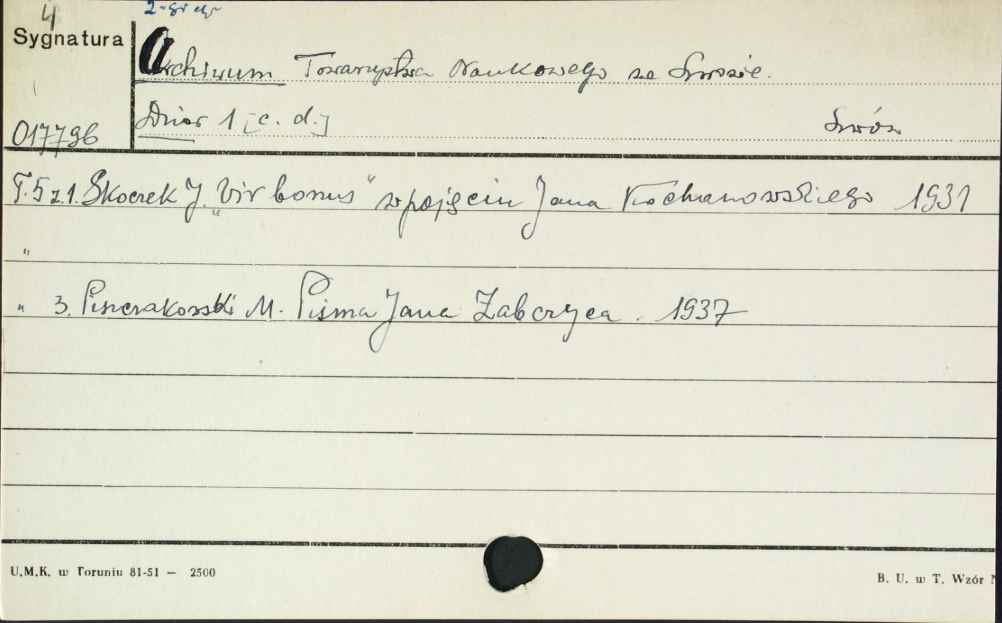 4
Sygnatura
Archiwum Towarzystwa Naukowego we Lwowie.
017796
Dział 1 [c. d.]
Lwów
T. 5 z 1. Skoczek J. "Vir bonus" w pojęciu Jana Kochanowskiego 1931
"
" 3. Piszczkowski M. Pisma Jana Żabczyca. 1937
U.M.K. w Toruniu 81-51 — 2500
B. U. w T. Wzór